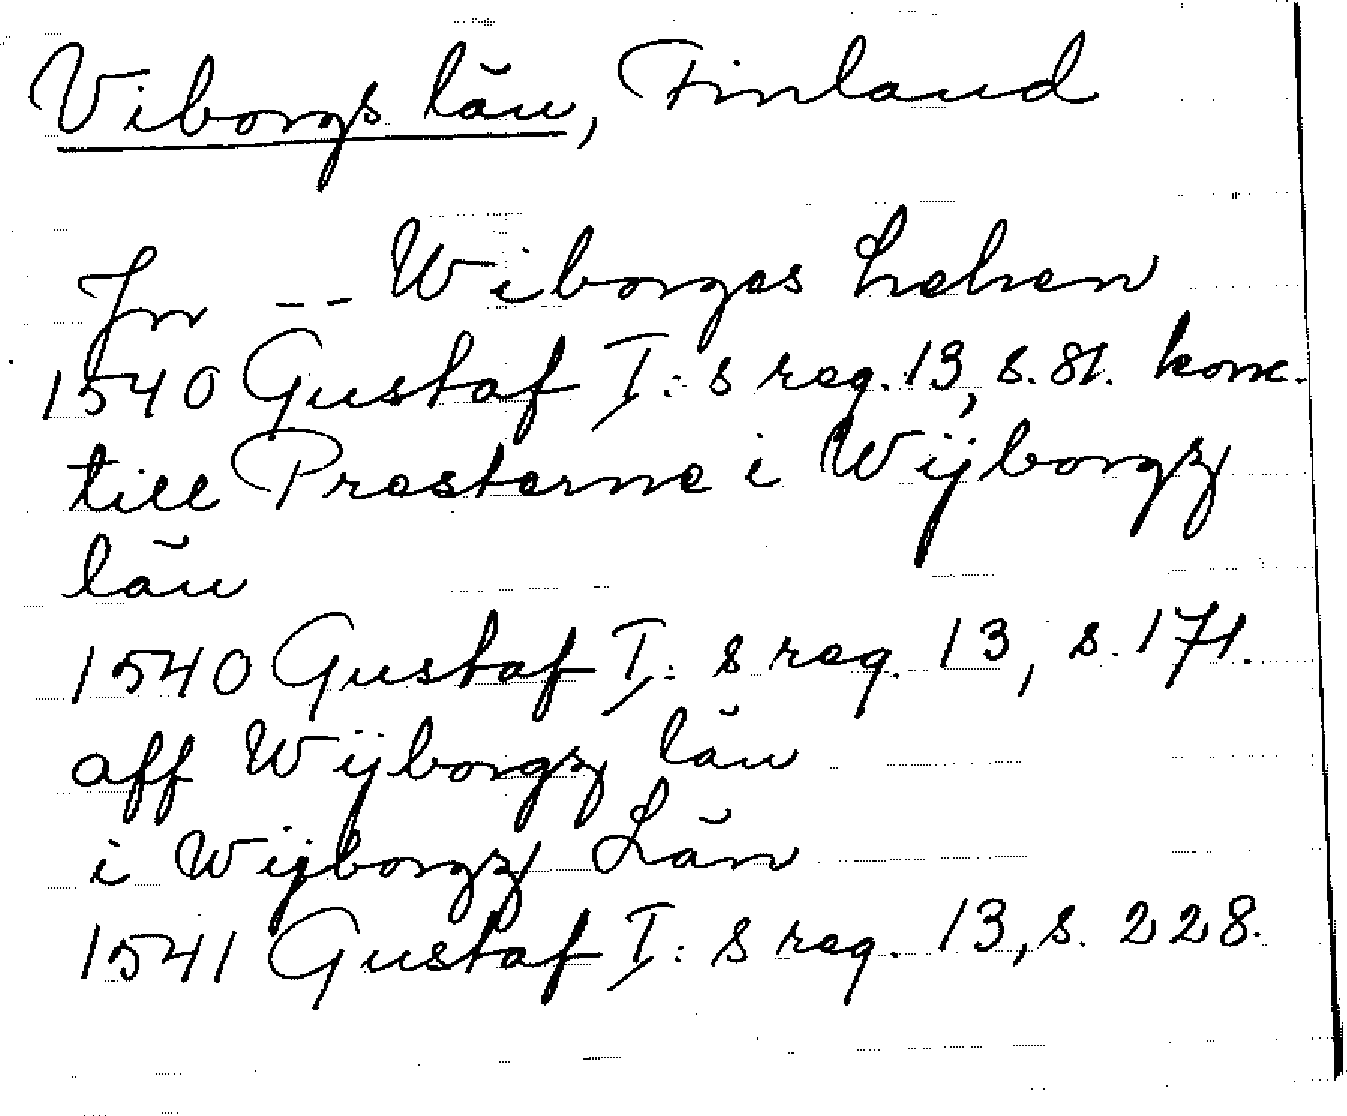 Viborgs län, Finland
Jn -- Wiborges Lehen
1540 Gustaf I:s reg. 13, s. 81. konc.
till Presterne i Wijborgz
län
1540 Gustaf I:s reg. 13, s. 171.
aff Wijborgz län
i Wijborgz Län
1541 Gustaf I:s reg. 13, s. 228.